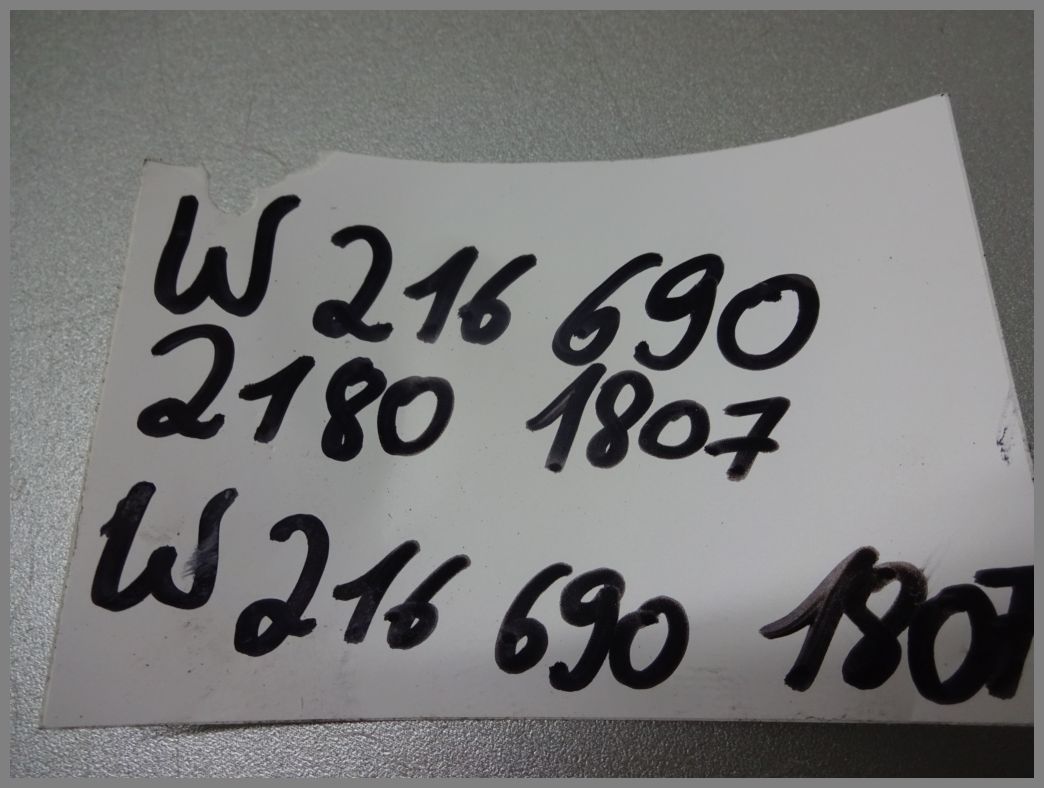 W 216 690
2180 1807
W 216 690 1807